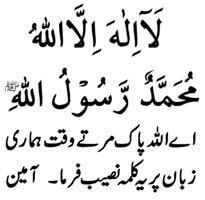 لَآ اِلٰهَ اِلَّا اللهُ
مُحَمَّدٌ رَّسُوْلُ اللهِ ﷺ
اے اللہ پاک مرتے وقت ہماری
زبان پر یہ کلمہ نصیب فرما۔ آمین